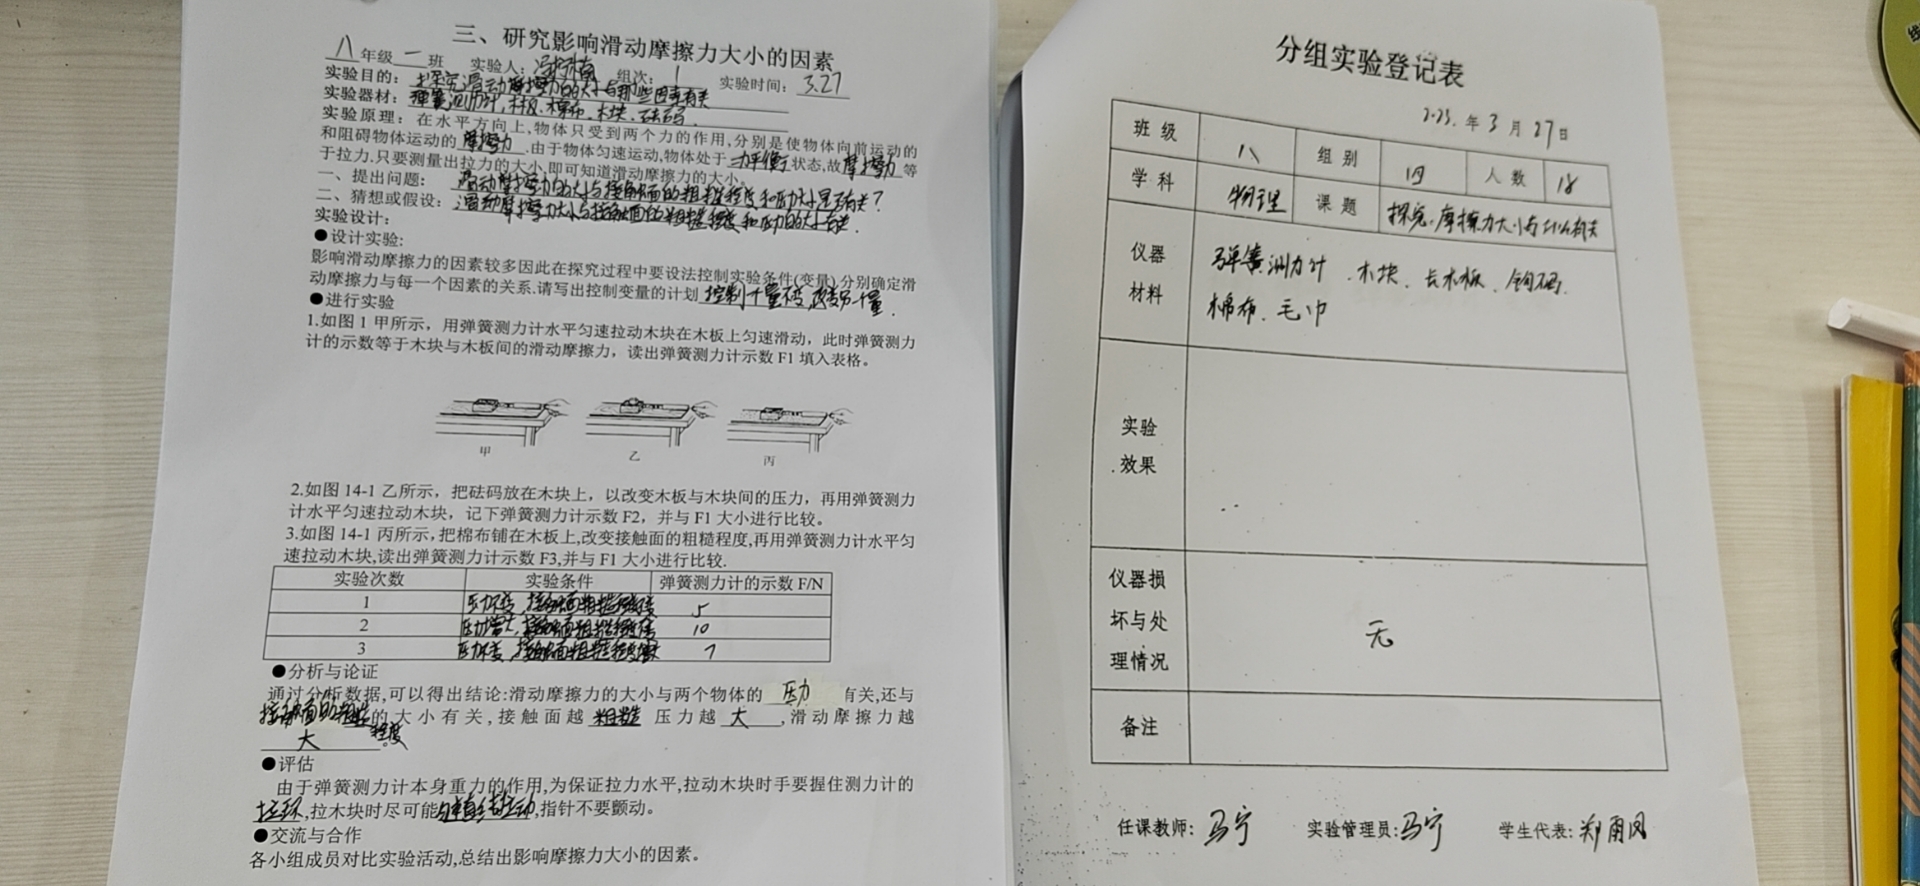 三、研究影响滑动摩擦力大小的因素
八年级一班 实验人： 组次：1 实验时间：3.27
实验目的：探究滑动摩擦力的大小与哪些因素有关
实验器材：弹簧测力计、木板、棉布、木块、砝码
实验原理：在水平方向上,物体只受到两个力的作用,分别是使物体向前运动的
和阻碍物体运动的摩擦力.由于物体匀速运动,物体处于力平衡状态,故摩擦力等
于拉力.只要测量出拉力的大小,即可知道滑动摩擦力的大小。
一、提出问题：滑动摩擦力的大小与接触面的粗糙程度和压力大小是否有关?
二、猜想或假设：滑动摩擦力大小与接触面的粗糙程度和压力的大小有关.
实验设计:
●设计实验:
影响滑动摩擦力的因素较多因此在探究过程中要设法控制实验条件(变量)分别确定滑
动摩擦力与每一个因素的关系.请写出控制变量的计划控制一个量不变,改变另一个量.
●进行实验
1.如图1甲所示，用弹簧测力计水平匀速拉动木块在木板上匀速滑动，此时弹簧测力
计的示数等于木块与木板间的滑动摩擦力，读出弹簧测力计示数F1填入表格。
甲 乙 丙
2.如图14-1乙所示，把砝码放在木块上，以改变木板与木块间的压力，再用弹簧测力
计水平匀速拉动木块，记下弹簧测力计示数F2，并与F1大小进行比较。
3.如图14-1丙所示,把棉布铺在木板上,改变接触面的粗糙程度,再用弹簧测力计水平匀
速拉动木块,读出弹簧测力计示数F3,并与F1大小进行比较.
实验次数 实验条件 弹簧测力计的示数F/N
1 压力不变，接触面粗糙程度不变 5
2 压力增大，接触面粗糙程度 10
3 压力不变，接触面粗糙程度 7
●分析与论证
通过分析数据,可以得出结论:滑动摩擦力的大小与两个物体的 压力 有关,还与
接触面的粗糙程度的大小有关,接触面越 粗糙 压力越 大 ,滑动摩擦力越
大 。
●评估
由于弹簧测力计本身重力的作用,为保证拉力水平,拉动木块时手要握住测力计的
拉环,拉木块时尽可能匀速直线拉动,指针不要颤动。
●交流与合作
各小组成员对比实验活动,总结出影响摩擦力大小的因素。
分组实验登记表
2023.年3月27日
班级 八 组别 四 人数 18
学科 物理 课题 探究摩擦力大小与什么有关
仪器材料 弹簧测力计、木块、长木板、钩码.
棉布、毛巾
实验效果
仪器损坏与处理情况 无
备注
任课教师：马宁 实验管理员：马宁 学生代表：郑雨风